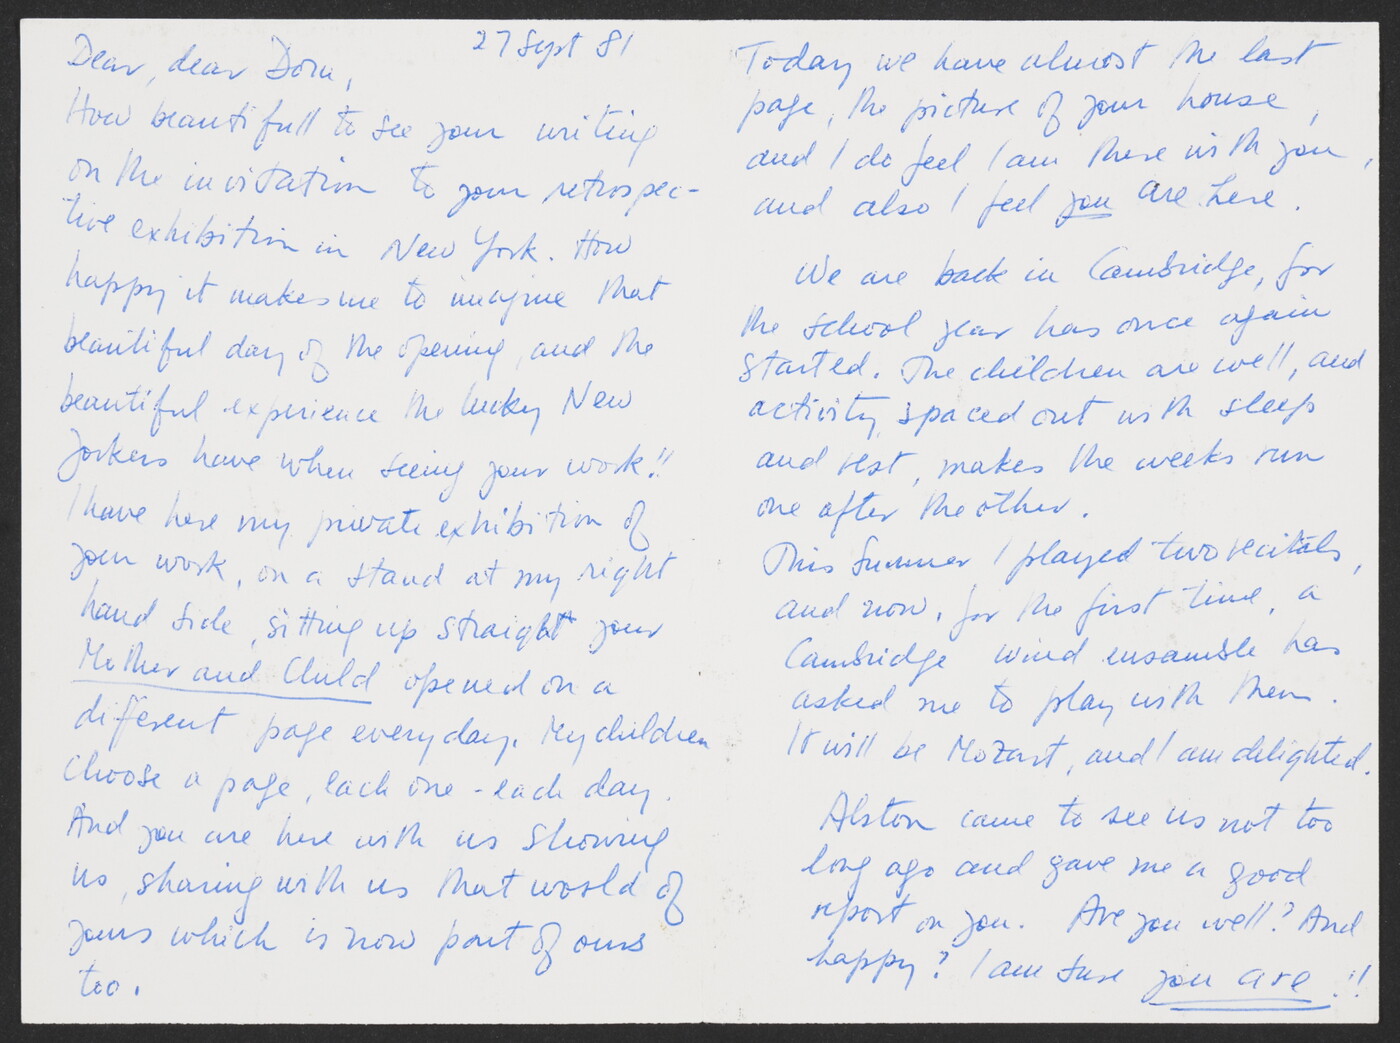 27 Sept 81
Dear, dear Dora,
How beautifull to see your writing
on the invitation to your retrospec-
tive exhibition in New York. How
happy it makes me to imagine that
beautiful day of the opening, and the
beautiful experience the lucky New
Yorkers have when seeing your work!!
I have here my private exhibition of
your work, on a stand at my right
hand side, sitting up straight your
Mother and Child opened on a
different page everyday. My children
choose a page, each one - each day.
And you are here with us showing
us, sharing with us that world of
yours which is now part of ours
too.
Today we have almost the last
page, the picture of your house,
and I do feel I am there with you,
and also I feel you are here.
We are back in Cambridge, for
the school year has once again
started. The children are well, and
activity, spaced out with sleep
and rest, makes the weeks run
one after the other.
This Summer I played two recitals,
and now, for the first time, a
Cambridge wind ensamble has
asked me to play with them.
It will be Mozart, and I am delighted.
Alston came to see us not too
long ago and gave me a good
report on you. Are you well? And
happy? I am sure you are!!